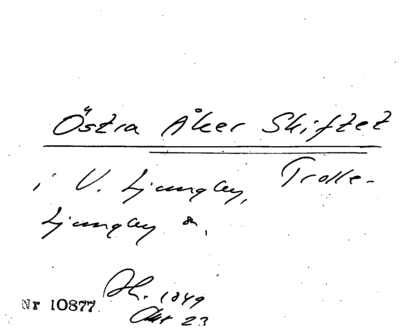 Östra Åker Skiftet
i V. Ljungby, Trolle-
Ljungby sn.
Nr 10877. H. 1849
Akt 23